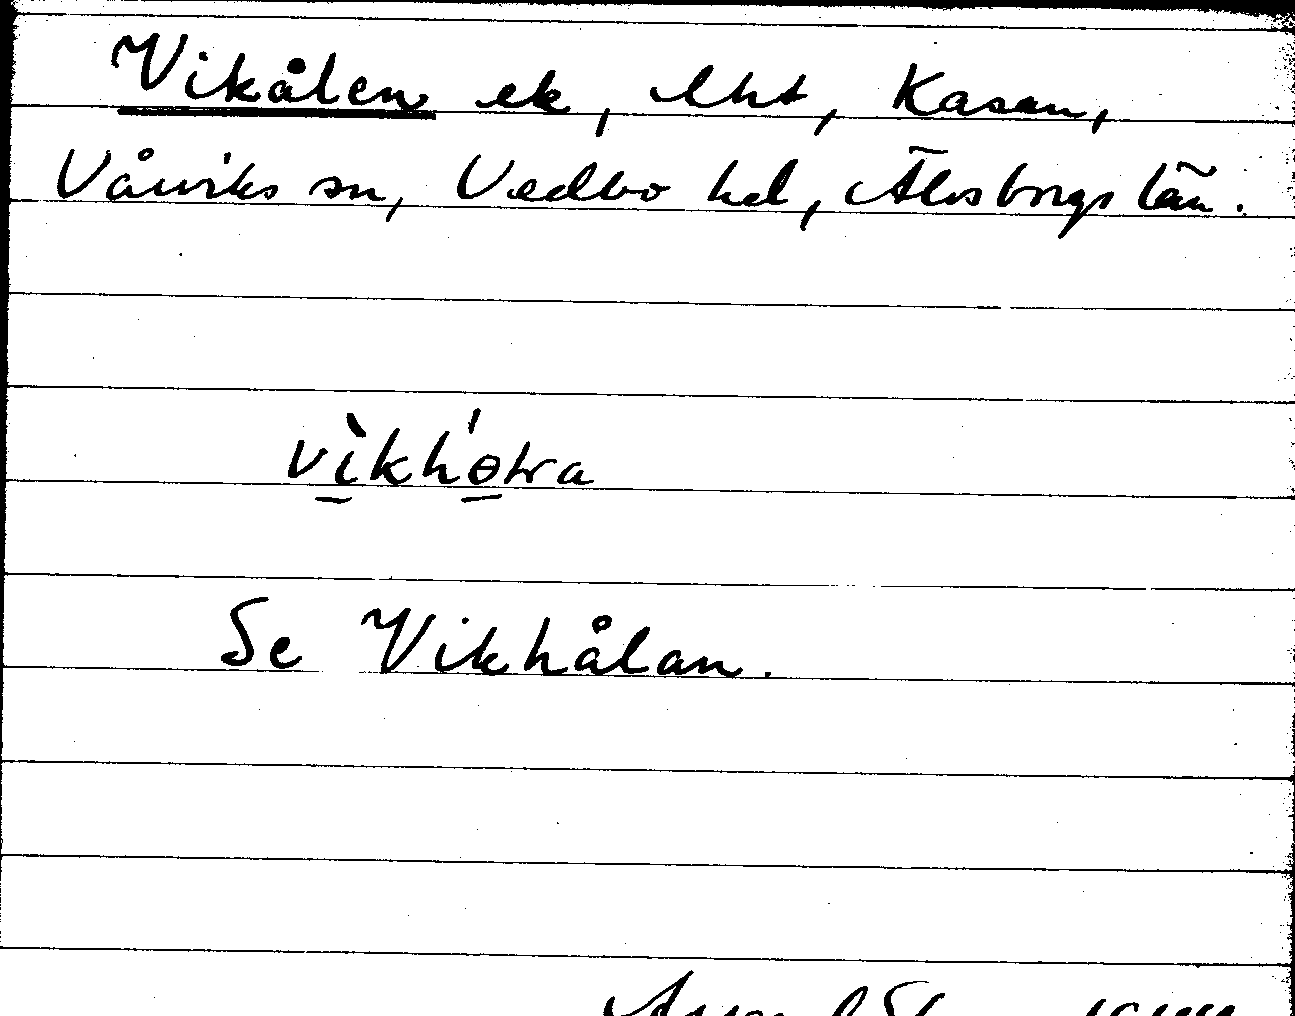 Vikålen ek, lht, Kasan,
Vårviks sn, Vedbo hd, Älvsborgs län.
vìkhɵ́tra
Se Vikhålan.